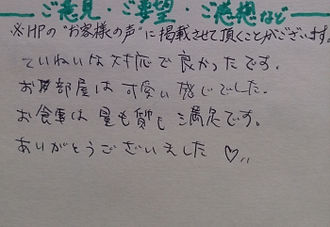 ご意見・ご要望・ご感想など
※HPの"お客様の声"に掲載させて頂くことがございます。
ていねいな対応で良かったです。
お部屋は可愛い感じでした。
お食事は量も質も満足です。
ありがとうございました♡